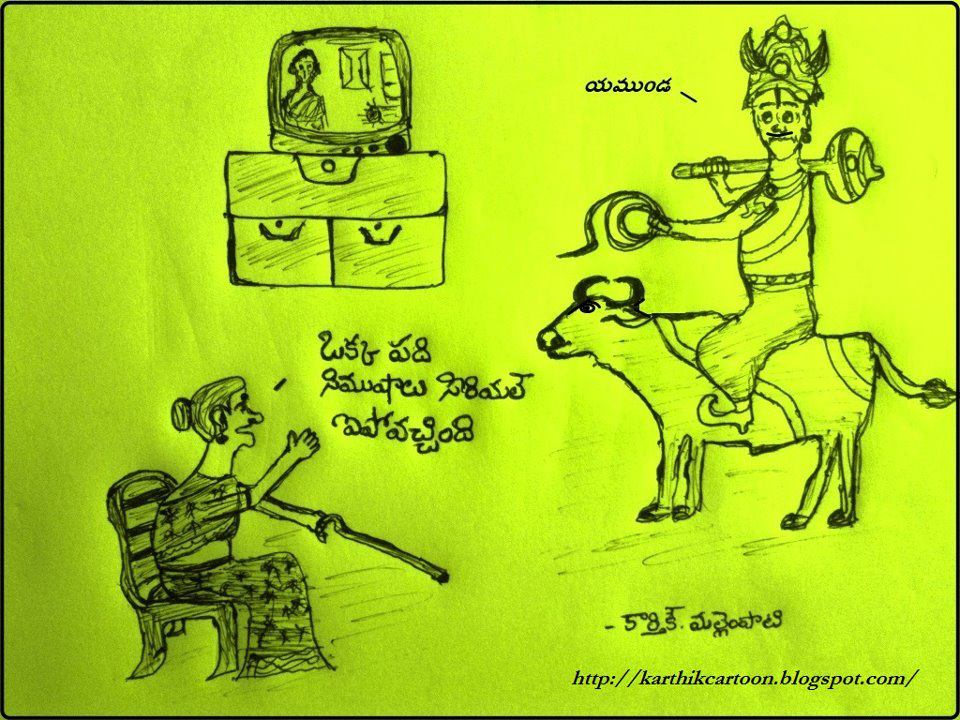 యముండ
ఒక్క పది
నిముషాలు సీరియల్
ఐపోవచ్చింది
- కార్తిక్. మల్లెంపాటి
http://karthikcartoon.blogspot.com/